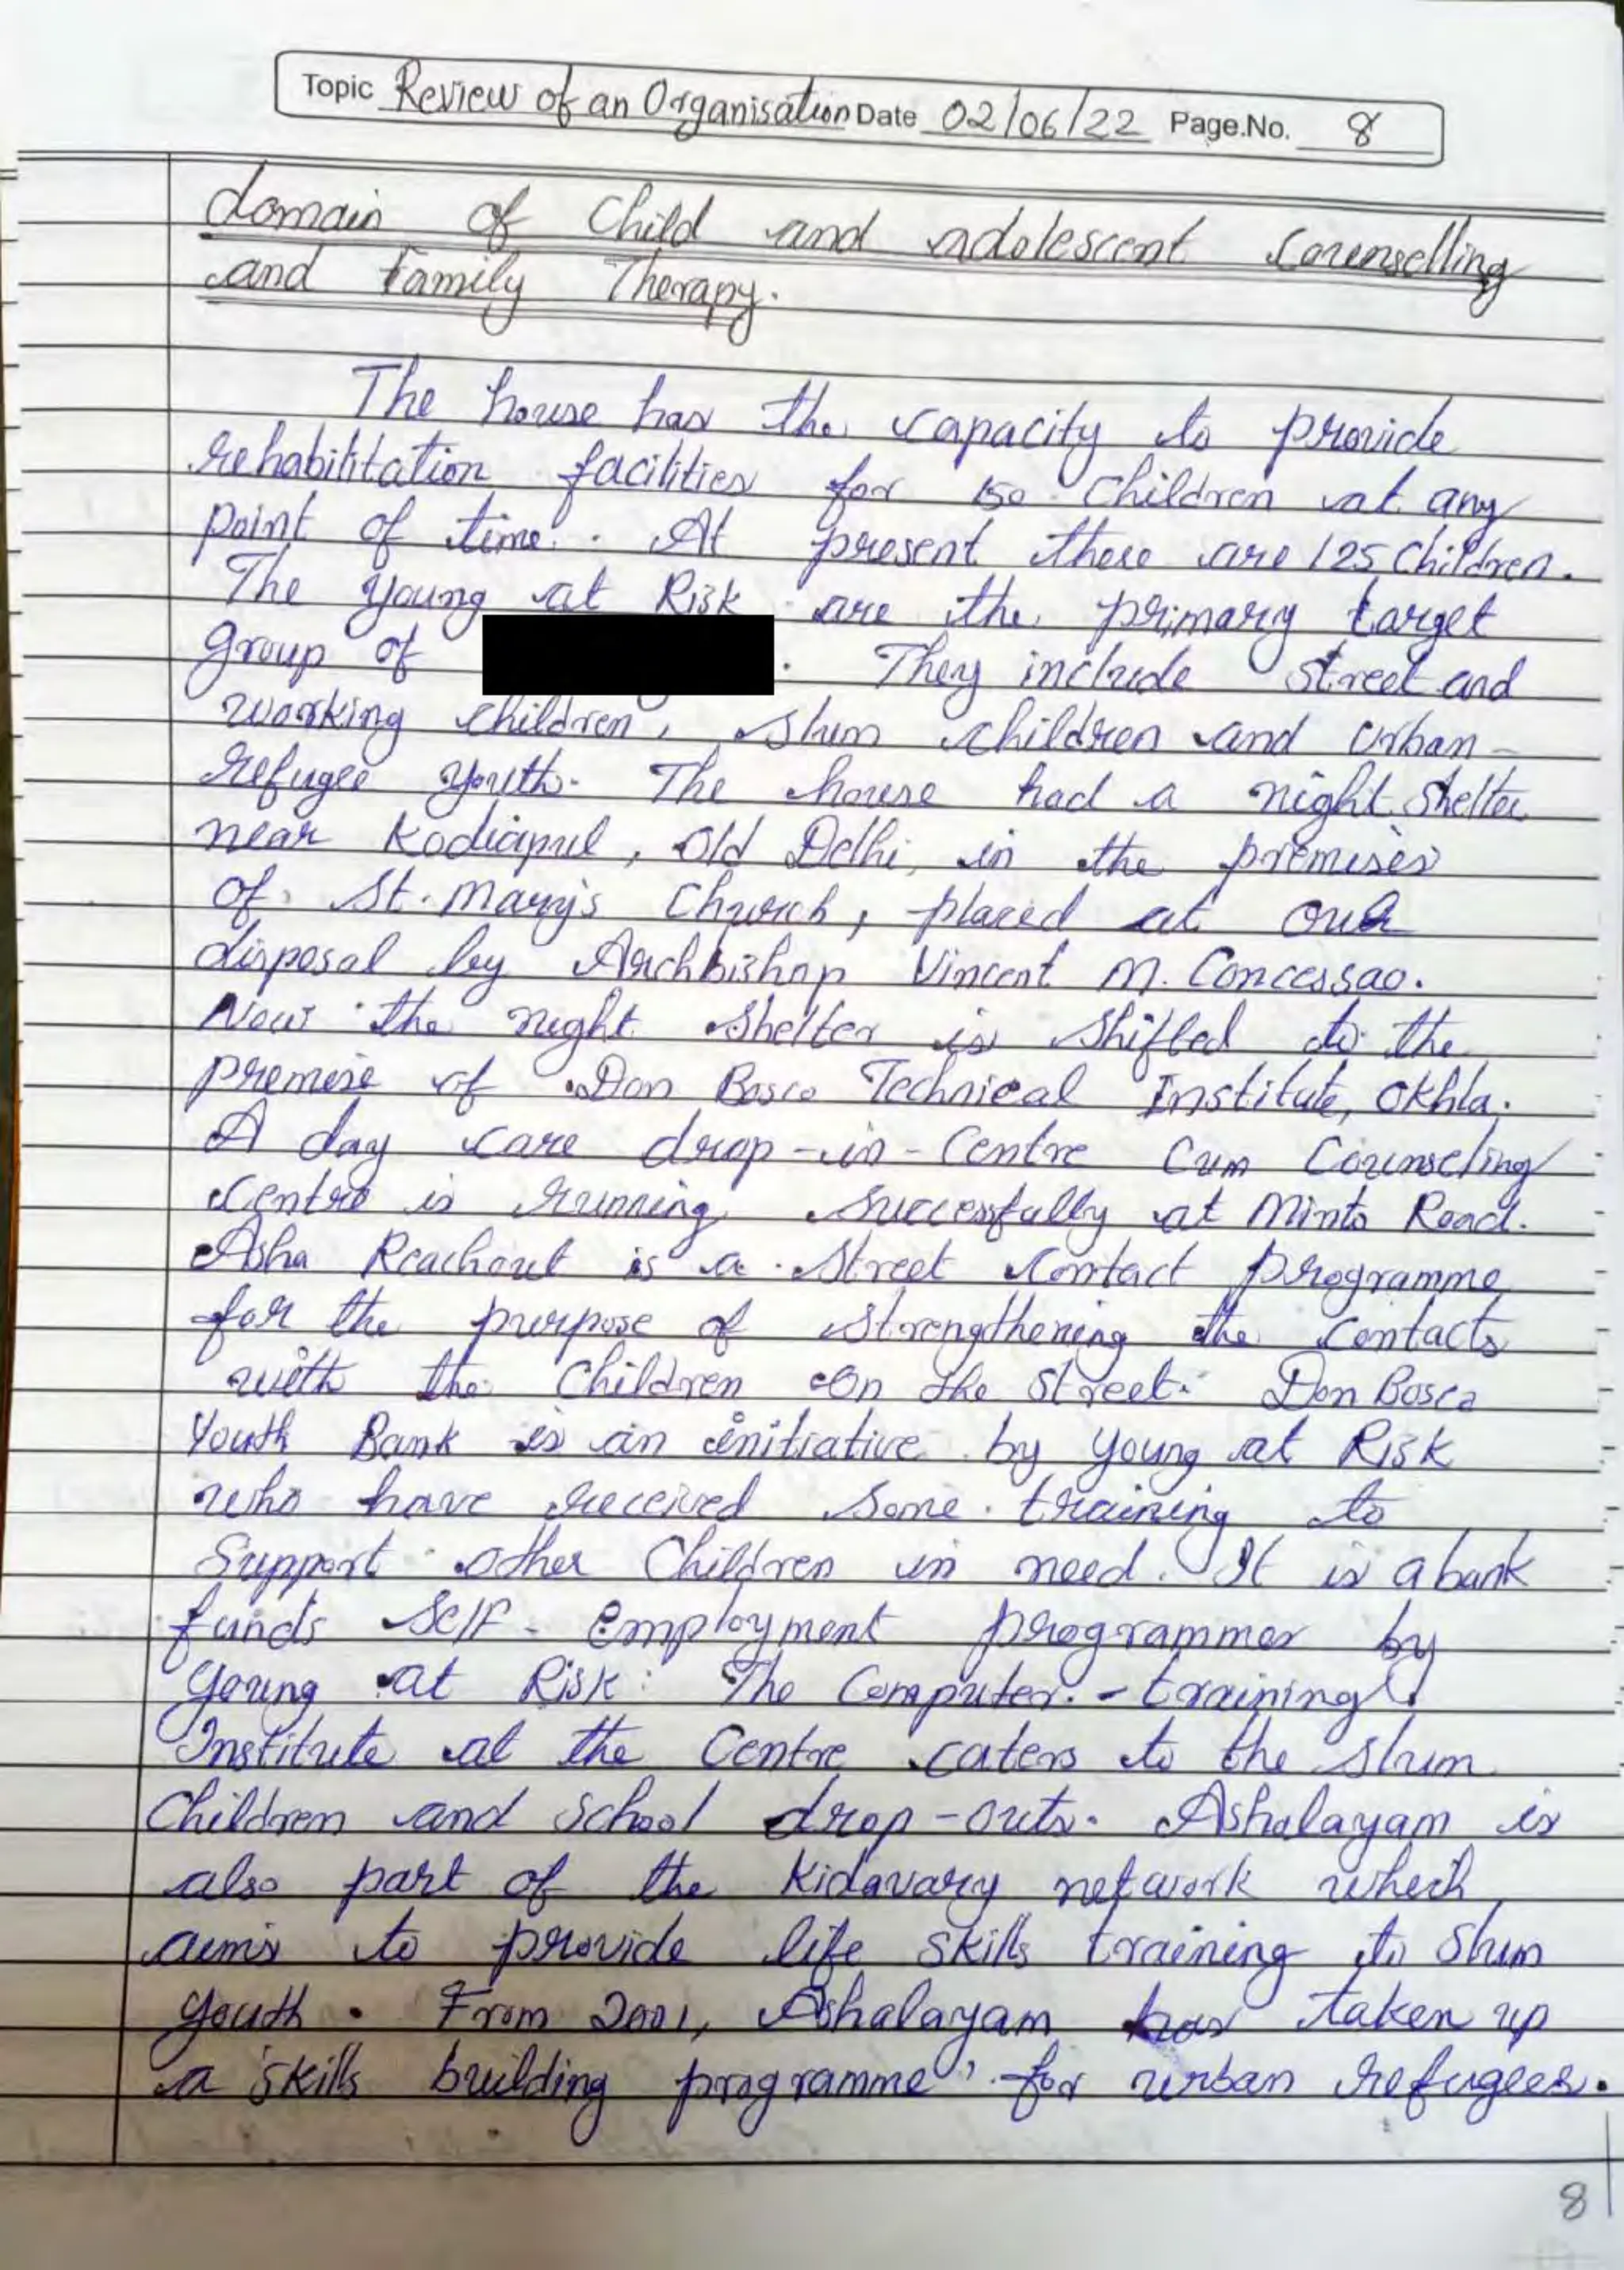 Topic Review of an Organisation Date 02/06/22 Page.No. 8
domain of Child and adolescent Counselling
and Family Therapy.
The house has the capacity to provide
rehabilitation facilities for 150 Children at any
point of time. At present there are 125 Children.
The Young at Risk are the primary target
group of . They include Street and
working children, slum children and Urban
refugee youth. The house had a night Shelter
near Kodiapul, Old Delhi, in the premises
of St. Mary's Church, placed at our
disposal by Archbishop Vincent M. Concessao.
Now the night Shelter is Shifted to the
premise of Don Bosco Technical Institute, Okhla.
A day care drop-in-Centre Cum Counseling
Centre is running successfully at Minto Road.
Asha Reachout is a Street Contact programme
for the purpose of strengthening the contacts
with the Children on the street. Don Bosco
Youth Bank is an initiative by young at Risk
who have received some training to
Support other Children in need. It is a bank
funds Self-employment programmes by
Young at Risk. The Computer-training
Institute at the Centre caters to the slum
Children and School drop-outs. Ashalayam is
also part of the Kidavary network which
aims to provide life skills training to Slum
Youth. From 2001, Ashalayam has taken up
a 'skills building programme' for urban refugees.
8